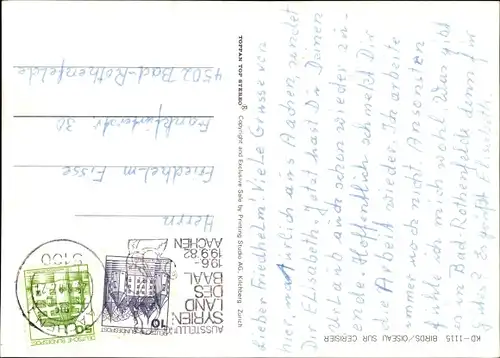 KD-1115 BIRDS/OISEAU SUR CERISIER
Lieber Friedhelm! Viele Grüsse von
hier, natürlich aus Aachen, sendet
Dir Elisabeth. Jetzt hast Du Deinen
Urlaub auch schon wieder zu-
ende. Hoffentlich schmeckt Dir
die Arbeit wieder. Ich arbeite
immer noch nicht. Ansonsten
fühle ich mich wohl. Was gibt
es in Bad Rothenfelde denn für
Es grüßt Elisabeth
TOPPAN TOP STEREO® Copyright and Exclusive Sale by Printing Studio AG, Kilchberg Zurich
AUSSTELLUNG
SYRIEN
LAND
DES
BAAL
19.6.-
19.9.82
AACHEN
10
DEUTSCHE BUNDESPOST
50
DEUTSCHE BUNDESPOST
5100
Herrn
Friedhelm Fisse
Frankfurterstr. 30
4502 Bad-Rothenfelde